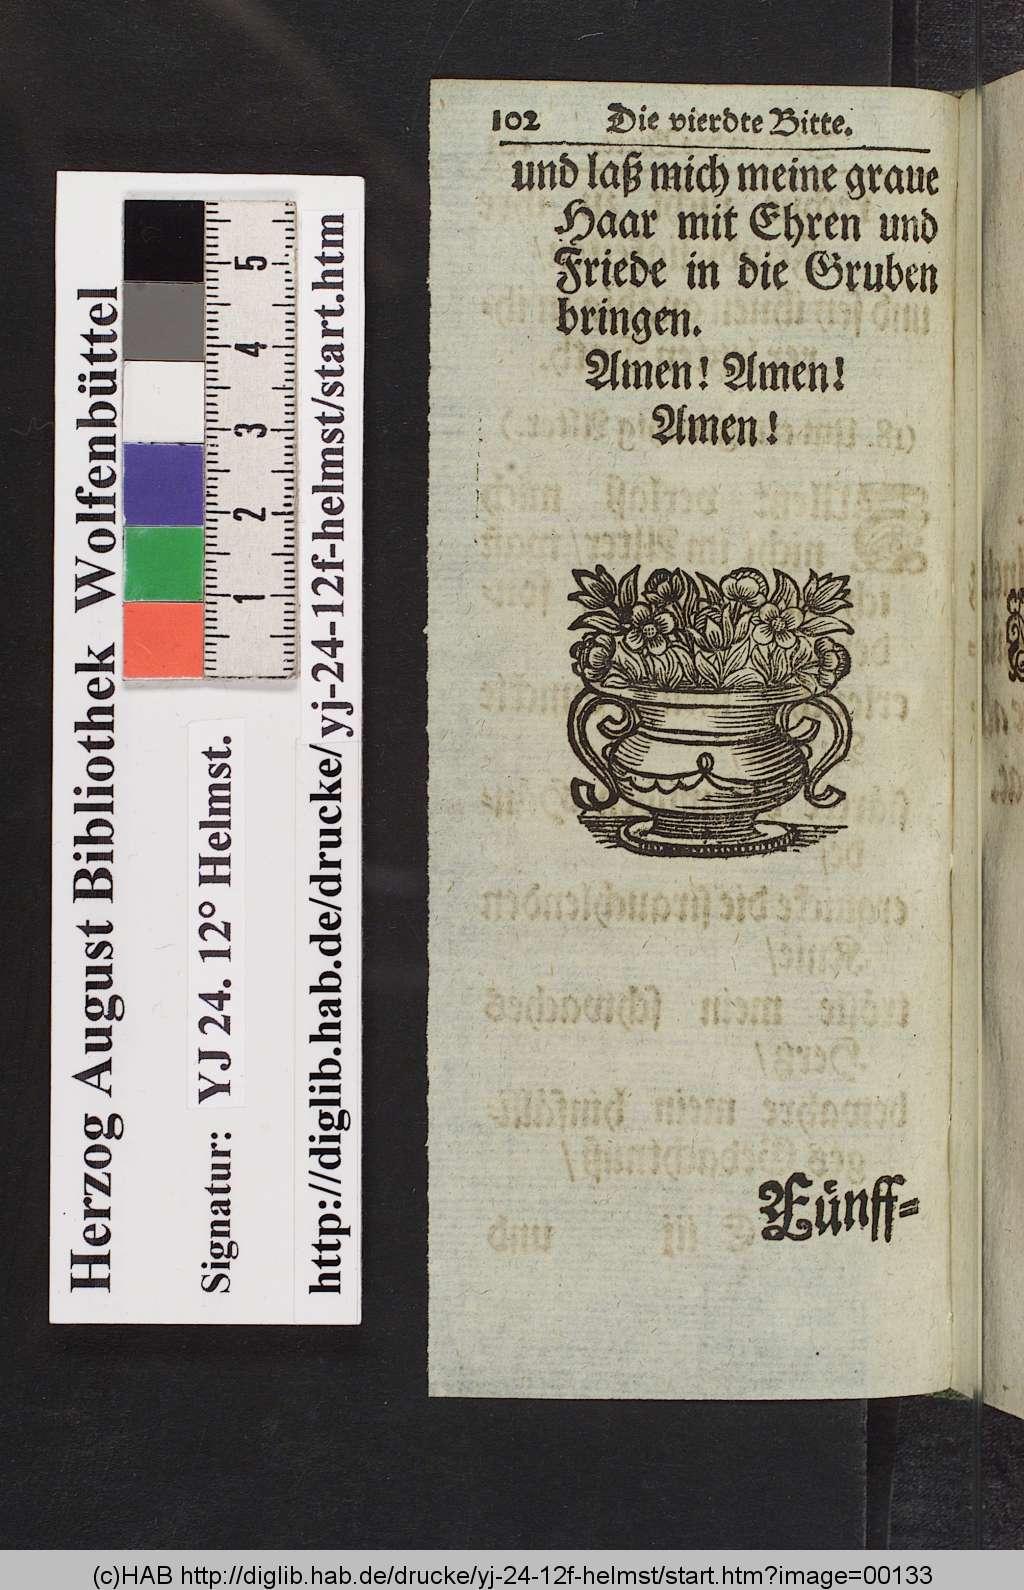 102 Die vierdte Bitte.
und laß mich meine graue
Haar mit Ehren und
Friede in die Gruben
bringen.
Amen! Amen!
Amen!
Fünff-
Herzog August Bibliothek Wolfenbüttel
Signatur: YJ 24. 12° Helmst.
http://diglib.hab.de/drucke/yj-24-12f-helmst/start.htm
5
4
3
2
1
(c)HAB http://diglib.hab.de/drucke/yj-24-12f-helmst/start.htm?image=00133